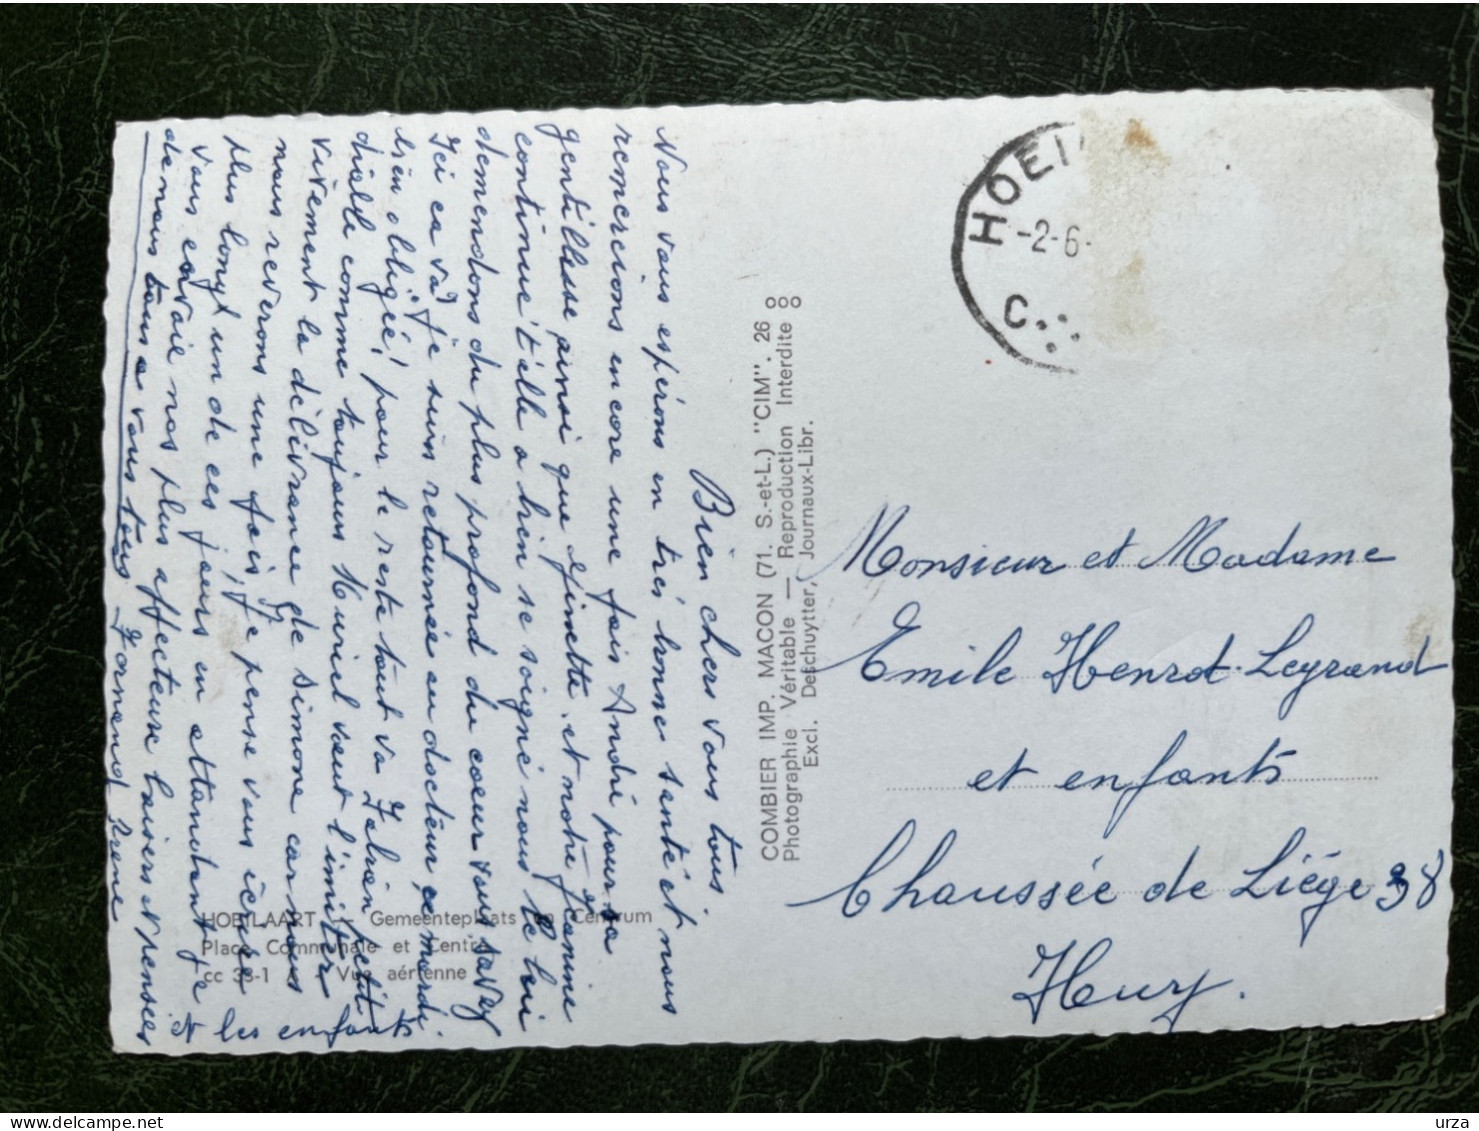 Bien chers vous tous
Nous vous espérons en très bonne santé et nous
remercions encore une fois André pour sa
gentillesse ainsi que Ginette, et notre Jeanine
continue t'elle a bien se soigné nous le lui
demendons du plus profond du coeur vous savez
Ici ca va, je suis retournée au docteur ce mardi
bien obligé! pour le reste tout va Fabien petit
diable comme toujours Muriel veut l'imiter
vivement la délivrance de Simone car nous
nous reverons une fois, je pense vous écire
plus long, un de ces jours en attandant je
vous envoie nos plus affecteuse baisers et pensées
de nous tous a vous tous Fernand Irène
et les enfants
HOEILAART Gemeenteplaats en Centrum
Place Communale et Centre
cc 33-1 A - Vue aérienne
COMBIER IMP. MACON (71. S.-et-L.) "CIM". 26
Photographie Véritable — Reproduction Interdite
Excl. Deschuytter, Journaux-Libr.
HOEI
-2-6-
C
Monsieur et Madame
Emile Henrot-Legrand
et enfants
Chaussée de Liège 38
Huy.
urza